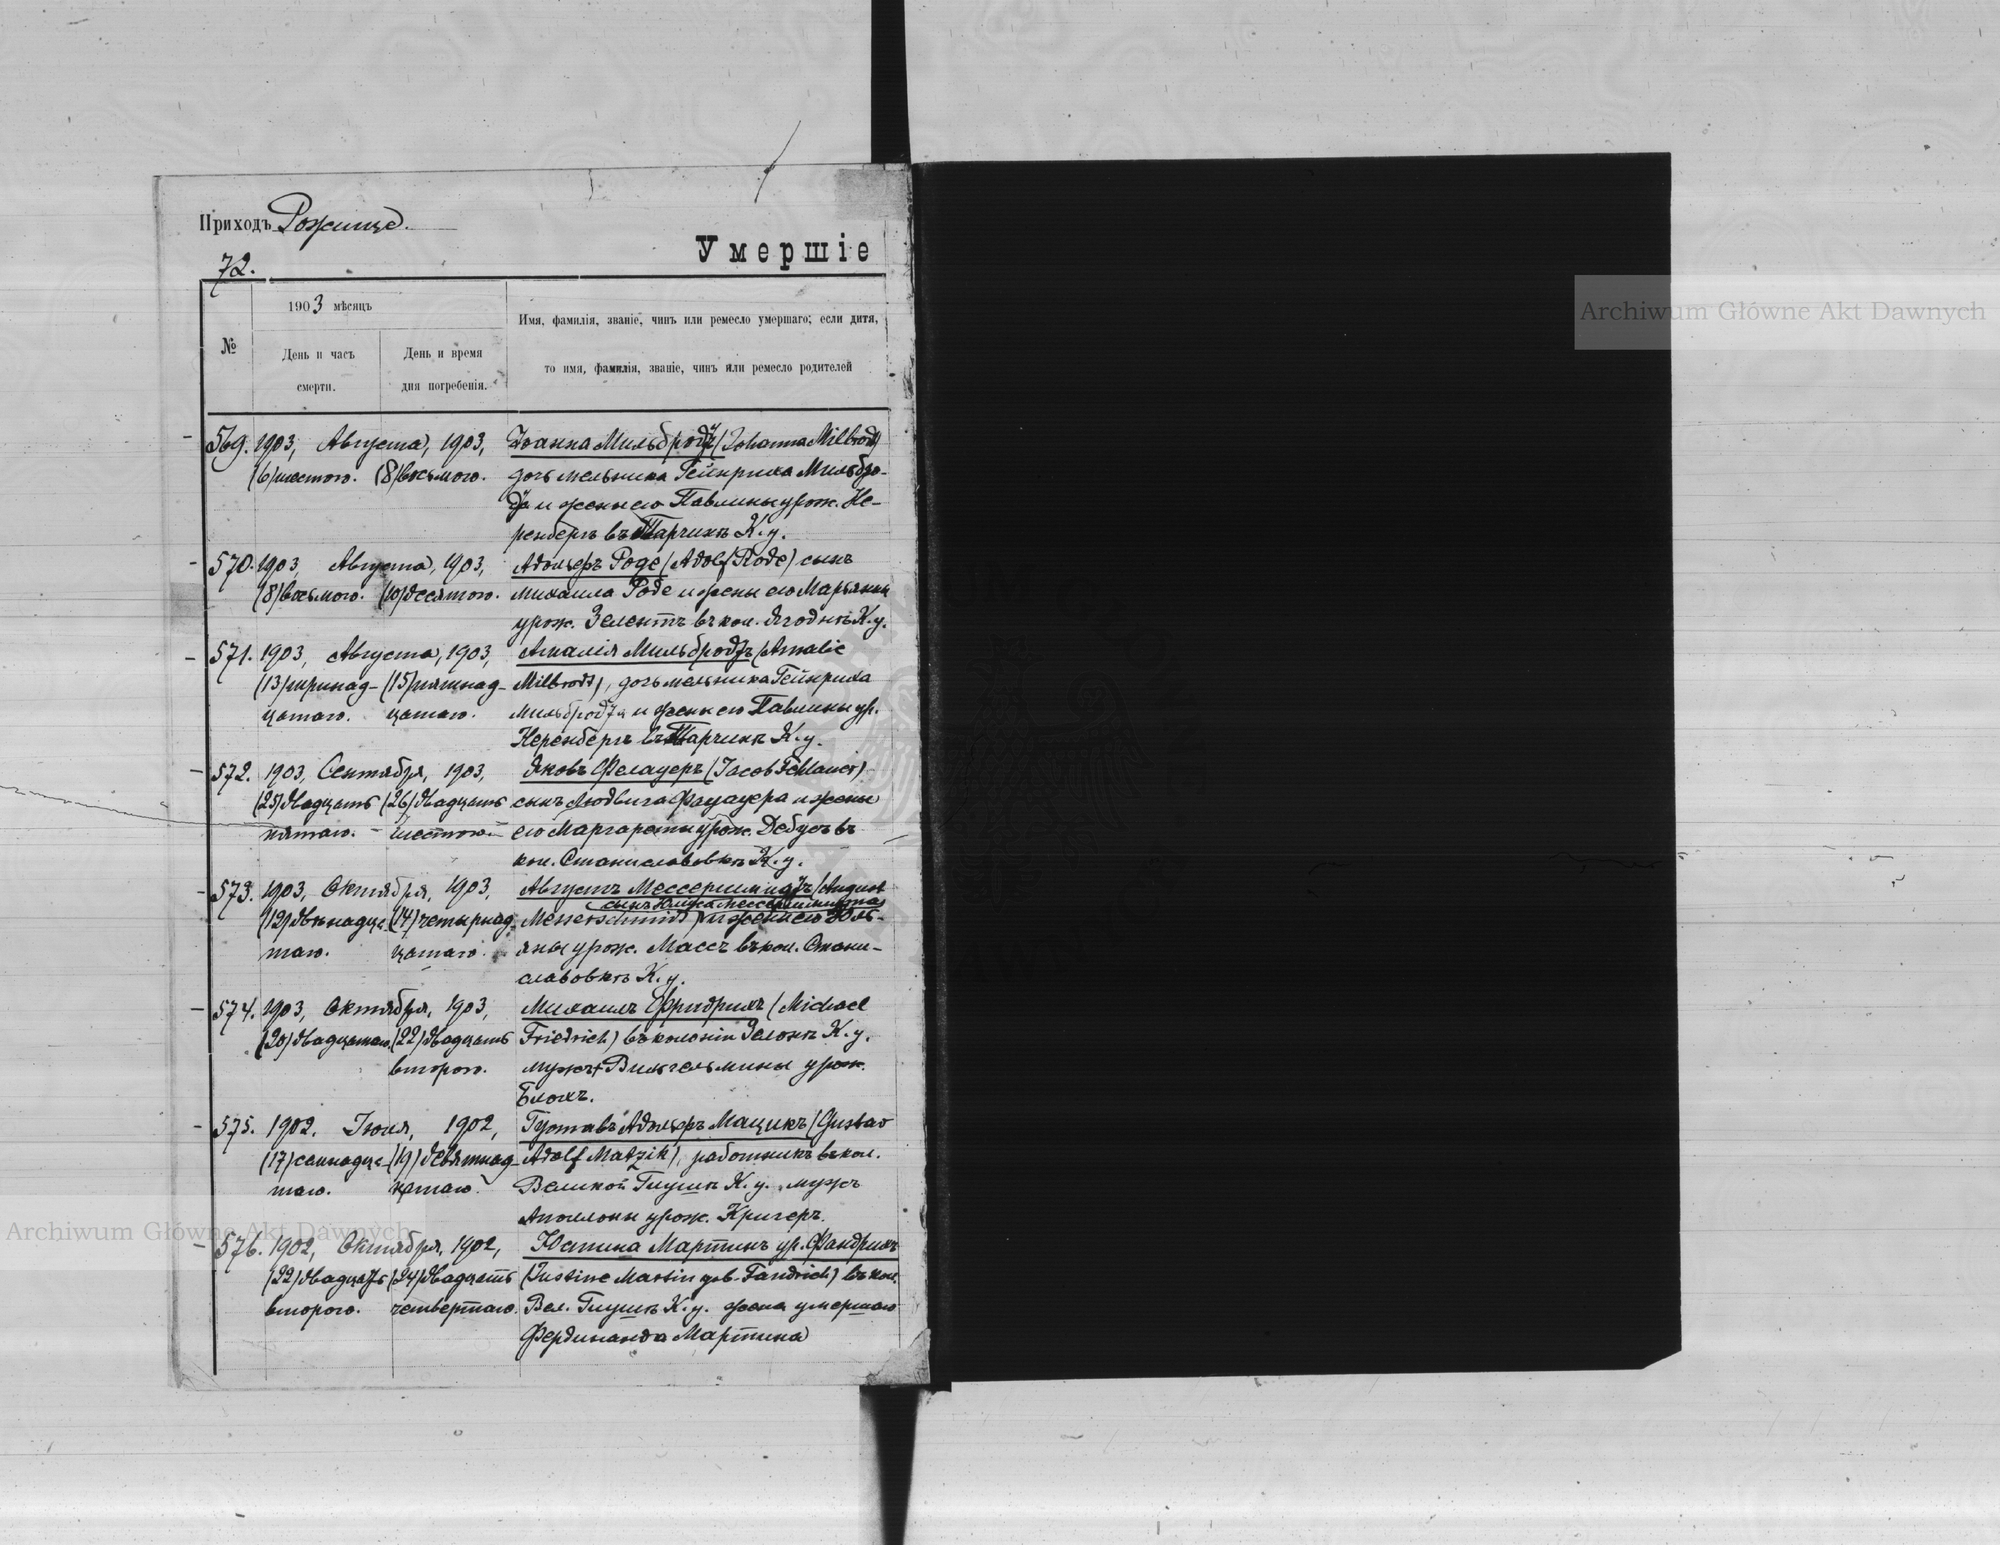 Приходъ Рожище.
Умершіе
72.
№
1903 мѣсяцъ
День и часъ смерти.
День и время дня погребенія.
Имя, фамилія, званіе, чинъ или ремесло умершаго; если дитя,
то имя, фамилія, званіе, чинъ или ремесло родителей
569. 1903, Августа, 1903, Іоанна Мильбродтъ (Johanna Milbrodt)
(6) шестого. (8) восьмого. дочь мельника Гейнриха Мильбро-
дта и жены его Павлины урож. Не-
ренбергъ въ Тарчинѣ К. у.
570. 1903, Августа, 1903, Адольфъ Роде (Adolf Rode) сынъ
(8) восьмого. (10) десятого. Михаила Роде и жены его Марьянны
урож. Зелентъ въ кол. Ягоднѣ К. у.
571. 1903, Августа, 1903, Амалія Мильбродтъ (Amalie
(13) тринад- (15) пятнад- Milbrodt), дочь мельника Гейнриха
цатаго. цатаго. Мильбродта и жены его Павлины ур.
Неренбергъ въ Тарчинѣ К. у.
572. 1903, Сентября, 1903, Яковъ (Jacob
(25) двадцать (26) двадцать сынъ Людвига и жены
пятаго. шестого. его Маргареты урож. Дебусъ въ
кол. Станиславовкѣ К. у.
573. 1903, Октября, 1903, Августъ Мессершмидтъ (August
сынъ Мессершмидта
(12) двѣнадца- (14) четырнад- Messerschmidt) и жены его Юль-
таго. цатаго. яны урож. Массъ въ кол. Стани-
славовкѣ К. у.
574. 1903, Октября, 1903, Михаилъ Фридрихъ (Michael
(20) двадцатаго. (22) двадцать Friedrich) въ колоніи К. у.
второго. мужъ Вильгельмины урож.
Блохъ.
575. 1902, Іюля, 1902, Густавъ Адольфъ Мацикъ (Gustav
(17) семнадца- (19) девятнад- Adolf Matzik), работникъ въ кол.
таго. цатаго. Великой Глушѣ К. у. мужъ
Аполлоны урож. Кригеръ.
576. 1902, Октября, 1902, Юстина Мартинъ ур. Фандрихъ
(22) двадцать (24) двадцать (Justine Martin geb. Fandrich) въ кол.
второго. четвертаго. Вел. Глушѣ К. у. жена умершаго
Фердинанда Мартина
Archiwum Główne Akt Dawnych
Archiwum Główne Akt Dawnych